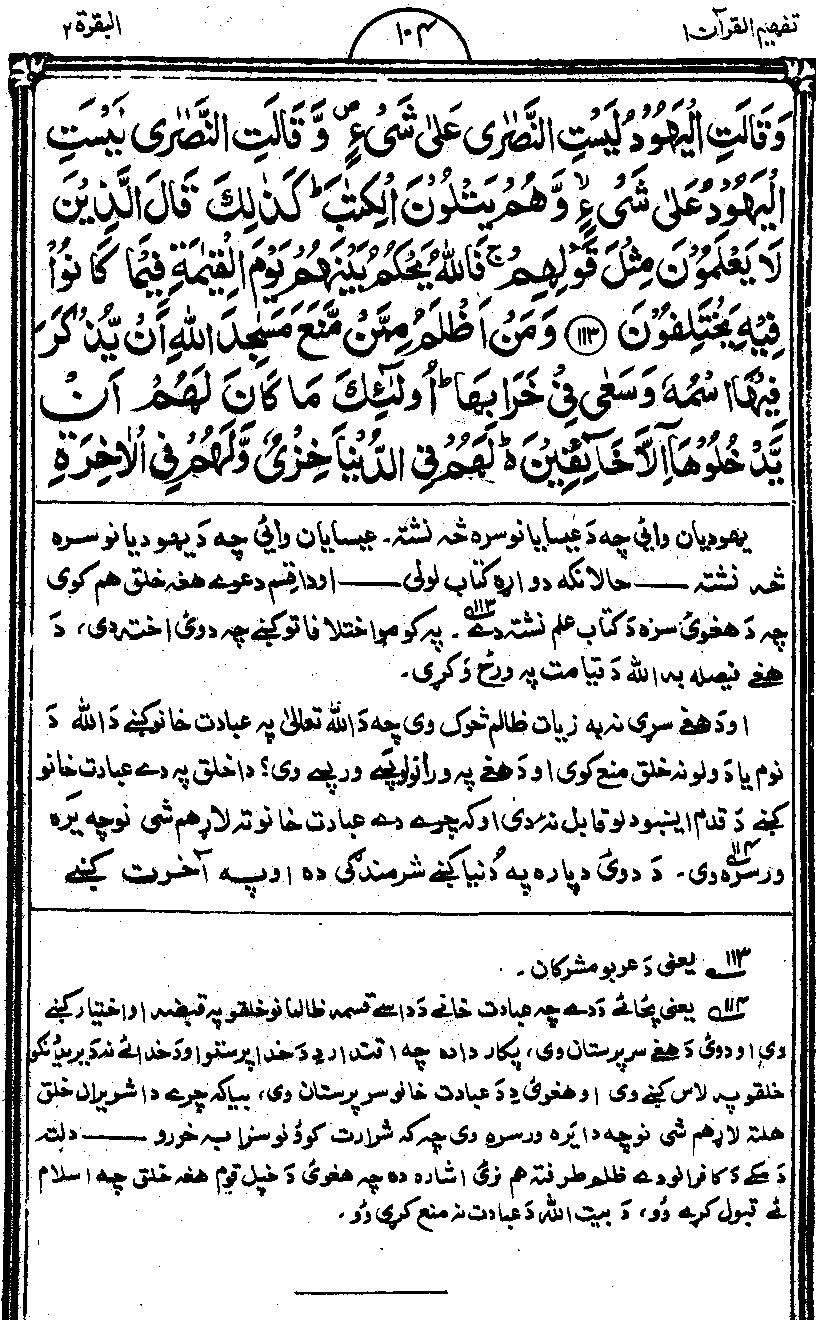 تفهيم القرآن ۱
۱۰۴
البقرة ۲
وَقَالَتِ الْيَهُوْدُ لَيْسَتِ النَّصٰرٰى عَلٰى شَیْءٍ ۪ وَّ قَالَتِ النَّصٰرٰى لَيْسَتِ
الْيَهُوْدُ عَلٰى شَیْءٍ ۙ وَّ هُمْ يَتْلُوْنَ الْكِتٰبَ ؕ كَذٰلِكَ قَالَ الَّذِيْنَ
لَا يَعْلَمُوْنَ مِثْلَ قَوْلِهِمْ ۚ فَاللّٰهُ يَحْكُمُ بَيْنَهُمْ يَوْمَ الْقِيٰمَةِ فِيْمَا كَانُوْا
فِيْهِ يَخْتَلِفُوْنَ ﴿۱۱۳﴾ وَمَنْ اَظْلَمُ مِمَّنْ مَّنَعَ مَسٰجِدَ اللّٰهِ اَنْ يُّذْكَرَ
فِيْهَا اسْمُهٗ وَسَعٰى فِیْ خَرَابِهَا ؕ اُولٰٓئِكَ مَا كَانَ لَهُمْ اَنْ
يَّدْخُلُوْهَاۤ اِلَّا خَآئِفِيْنَ ؕ لَهُمْ فِی الدُّنْيَا خِزْیٌ وَّلَهُمْ فِی الْاٰخِرَةِ
يهوديان وائي چه دَ عيسايانو سره څه نشته۔ عيسايان وائي چه دَ يهوديانو سره
څه نشته —— حالانكه دواړه كتاب لولى —— او دا قسم دعوے هغه خلق هم كوى
چه دَ هغوئ سره دَ كتاب علم نشته دے ۱۱۳۔ په كومو اختلافاتو كښے چه دوئ اخته دى، دَ
هغے فيصله به الله دَ قيامت په ورځ وَ كړى۔
او دَ هغے سړى نه به زيات ظالم څوک وى چه دَ الله تعالىٰ په عبادت خانو كښے دَ الله دَ
نوم يادولو نه خلق منع كوى او دَ هغے په ورانولو پسے ورپسے وى؟ دا خلق په دے عبادت خانو
كښے دَ قدم اينښودلو قابل نه دى او كه چرے دے عبادت خانو ته لاړ هم شى نو چه يَره
ورسره وى ۱۱۴۔ دَ دوئ دپاره په دُنيا كښے شرمندگى ده او په آخرت كښے
۱۱۳ يعنى دَ عربو مشركان۔
۱۱۴ يعنى پځائے دَ دے چه عبادت خانے دَ داسے قسمه ظالمانو خلقو په قبضه او اختيار كښے
وى او دوئ دَ هغے سرپرستان وى، پكار داده چه اقتدار دِ دَ خدا پرستو او دَ خدائے نه دَ يريدونكو
خلقو په لاس كښے وى او هغوئ دِ دَ عبادت خانو سرپرستان وى، بيا كه چرے دا شريران خلق
هلته لاړ هم شى نو چه دا يَره ورسره وى چه كه شرارت كوؤ نو سزا به خورو —— دلته
دَ مكے دَ كافرانو دے ظلم طرف ته هم نرئ اشاره ده چه هغوئ دَ خپل قوم هغه خلق چه اسلام
ئے قبول كړے وُو، دَ بيت الله دَ عبادت نه منع كړى وُو۔